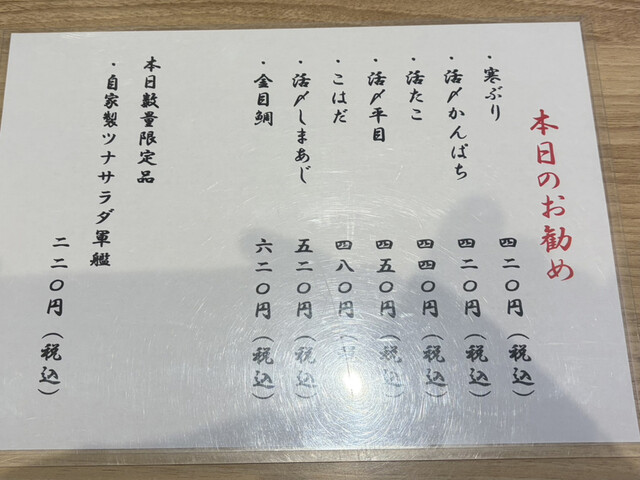 本日のお勧め
・寒ぶり 四二〇円（税込）
・活〆かんぱち 四二〇円（税込）
・活たこ 四四〇円（税込）
・活〆平目 四五〇円（税込）
・こはだ 四八〇円（税込）
・活〆しまあじ 五二〇円（税込）
・金目鯛 六二〇円（税込）
本日数量限定品
・自家製ツナサラダ軍艦 二二〇円（税込）